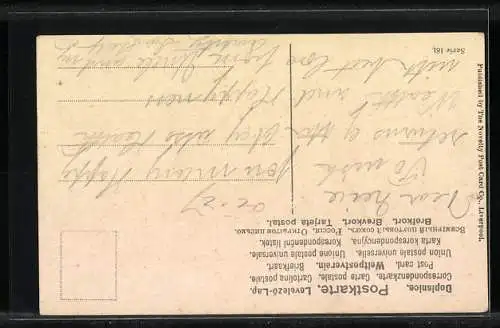 Dopisnice. Postkarte. Levelező-Lap.
Correspondenzkarte. Carte postale. Cartolina postale
Post card. Weltpostverein. Briefkaart.
Union postale universelle. Unione postale universale
Karta korespondencyjna. Korespondenční lístek.
Всемирный почтовый союз. Россія. Открытое письмо.
Brefkort. Brevkort. Tarjeta postal.
Dear Neice
To wish you many Happy
returns of the Day also Health
Wealth and Happyness
with best love from Uncle and
Serie 161.
Published by The Novelty Post Card Co., Liverpool.